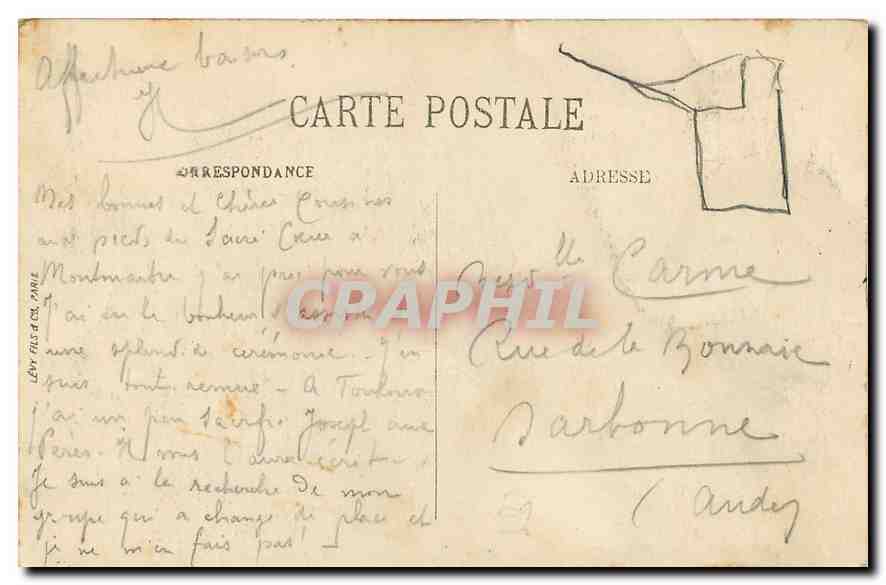 Affectueux baisers
CARTE POSTALE
CORRESPONDANCE
ADRESSE
Mes bonnes et chères Cousines
aux pieds du Sacré Cœur à
Montmartre j'ai prié pour vous
J'ai eu le bonheur d'assister
une splendide cérémonie - J'en
suis tout remué - A Toulouse
j'ai un peu Joseph aux
Pères. Il vous l'aura écrit -
Je suis à la recherche de mon
groupe qui a changé de place et
je ne m'en fais pas! -
LÉVY FILS & Co, PARIS
CPAPHIL
Mesd lle Carme
Rue de la
Narbonne
(Aude)